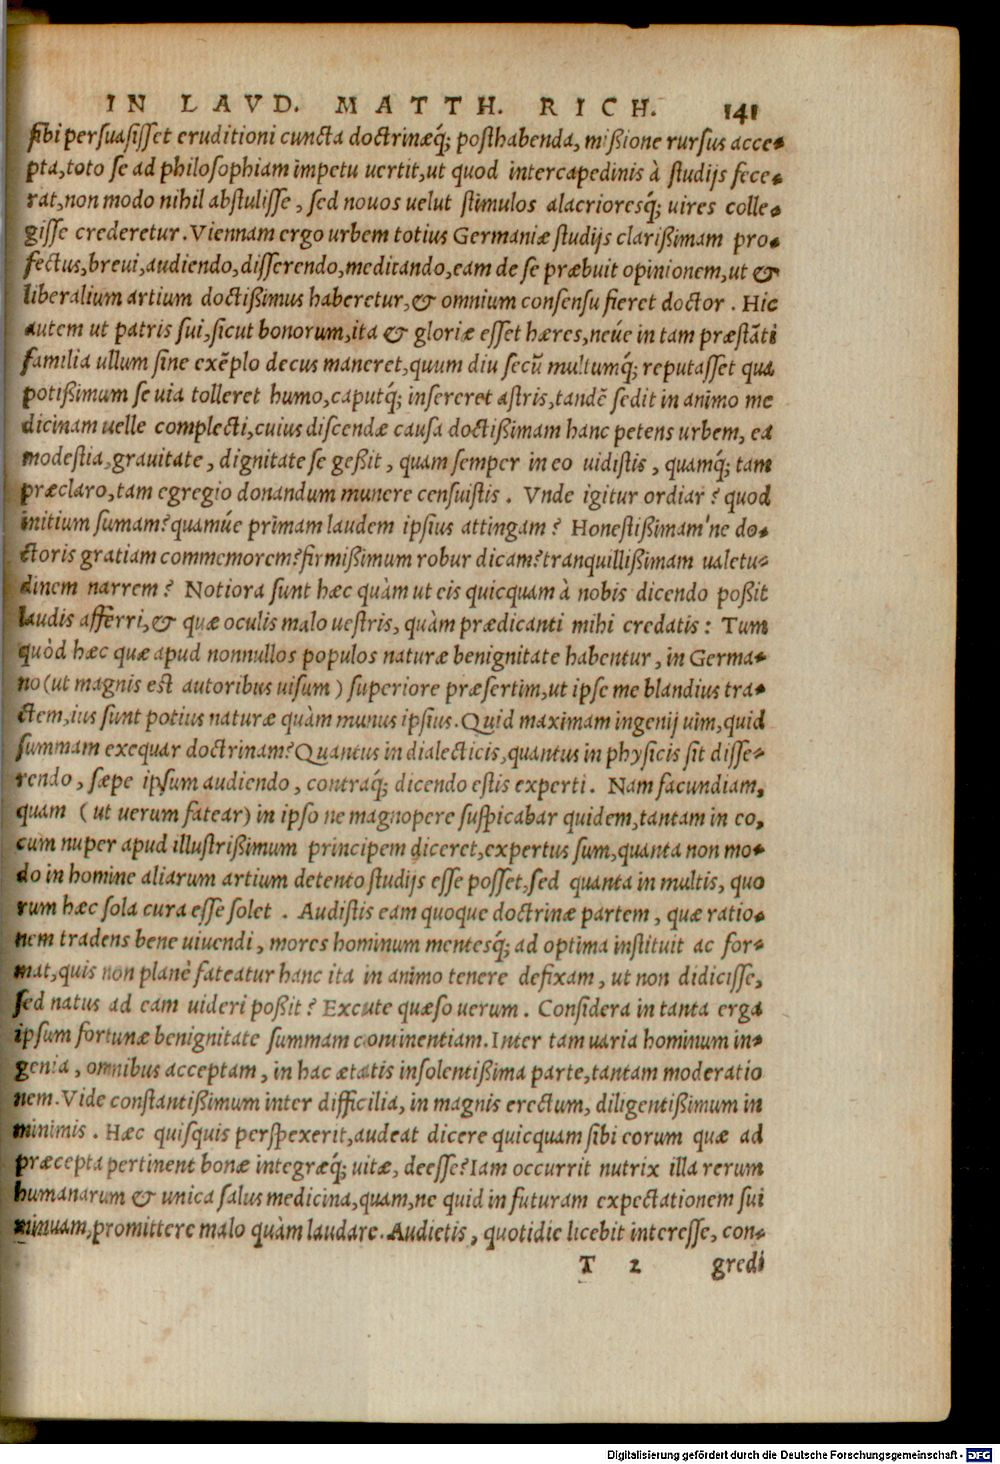 IN LAVD. MATTH. RICH. 141
sibi persuasisset eruditioni cuncta doctrinæq́; posthabenda, mißione rursus acce-
pta, toto se ad philosophiam impetu uertit, ut quod intercapedinis à studijs fece-
rat, non modo nihil abstulisse, sed nouos uelut stimulos alacrioresq́; uires colle-
gisse crederetur. Viennam ergo urbem totius Germaniæ studijs clarißimam pro-
fectus, breui, audiendo, disserendo, meditando, eam de se præbuit opinionem, ut &
liberalium artium doctißimus haberetur, & omnium consensu fieret doctor. Hic
autem ut patris sui, sicut bonorum, ita & gloriæ esset hæres, neúe in tam præstāti
familia ullum sine exēplo decus maneret, quum diu secū multumq́; reputasset qua
potißimum se uia tolleret humo, caputq́; insereret astris, tandē sedit in animo me
dicinam uelle complecti, cuius discendæ causa doctißimam hanc petens urbem, ea
modestia, grauitate, dignitate se geßit, quam semper in eo uidistis, quamq́; tam
præclaro, tam egregio donandum munere censuistis. Vnde igitur ordiar? quod
initium sumam? quamúe primam laudem ipsius attingam? Honestißimam'ne do-
ctoris gratiam commemorem? firmißimum robur dicam? tranquillißimam ualetu-
dinem narrem? Notiora sunt hæc quàm ut eis quicquam à nobis dicendo poßit
laudis afferri, & quæ oculis malo uestris, quàm prædicanti mihi credatis: Tum
quòd hæc quæ apud nonnullos populos naturæ benignitate habentur, in Germa-
no (ut magnis est autoribus uisum) superiore præsertim, ut ipse me blandius tra-
ctem, ius sunt potius naturæ quàm munus ipsius. Quid maximam ingenij uim, quid
summam exequar doctrinam? Quantus in dialecticis, quantus in physicis sit disse-
rendo, sæpe ipsum audiendo, contraq́; dicendo estis experti. Nam facundiam,
quam (ut uerum fatear) in ipso ne magnopere suspicabar quidem, tantam in eo,
cum nuper apud illustrißimum principem diceret, expertus sum, quanta non mo-
do in homine aliarum artium detento studijs esse posset, sed quanta in multis, quo
rum hæc sola cura esse solet. Audistis eam quoque doctrinæ partem, quæ ratio-
nem tradens bene uiuendi, mores hominum mentesq́; ad optima instituit ac for-
mat, quis non planè fateatur hanc ita in animo tenere defixam, ut non didicisse,
sed natus ad eam uideri poßit? Excute quæso uerum. Considera in tanta erga
ipsum fortunæ benignitate summam continentiam. Inter tam uaria hominum in-
genia, omnibus acceptam, in hac ætatis insolentißima parte, tantam moderatio
nem. Vide constantißimum inter difficilia, in magnis erectum, diligentißimum in
minimis. Hæc quisquis perspexerit, audeat dicere quicquam sibi eorum quæ ad
præcepta pertinent bonæ integræq́; uitæ, deesse? Iam occurrit nutrix illa rerum
humanarum & unica salus medicina, quam, ne quid in futuram expectationem sui
minuam, promittere malo quàm laudare. Audietis, quotidie licebit interesse, con-
T 2 gredi
Digitalisierung gefördert durch die Deutsche Forschungsgemeinschaft - DFG